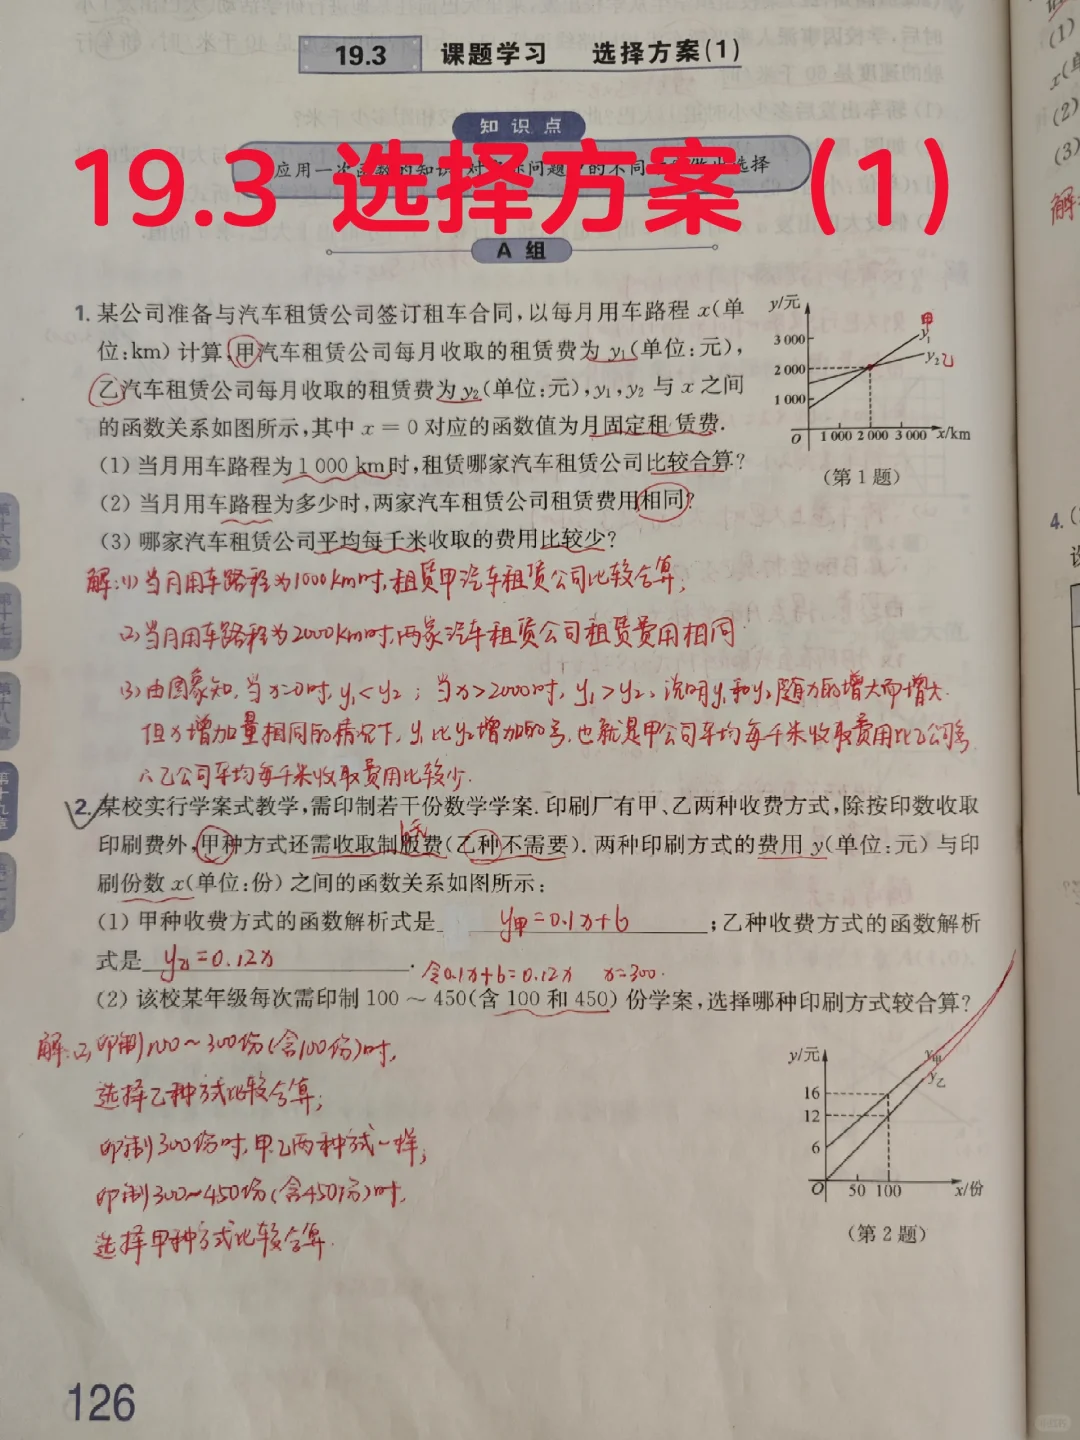 19.3 课题学习 选择方案(1)
知识点
19.3 选择方案（1）
A 组
1. 某公司准备与汽车租赁公司签订租车合同,以每月用车路程 x(单
位:km) 计算,甲汽车租赁公司每月收取的租赁费为 y₁(单位:元),
乙汽车租赁公司每月收取的租赁费为 y₂(单位:元),y₁,y₂ 与 x 之间
的函数关系如图所示,其中 x = 0 对应的函数值为月固定租赁费.
(1) 当月用车路程为 1 000 km时,租赁哪家汽车租赁公司比较合算?
(2) 当月用车路程为多少时,两家汽车租赁公司租赁费用相同?
(3) 哪家汽车租赁公司平均每千米收取的费用比较少?
y/元
3 000
2 000
1 000
O 1 000 2 000 3 000 x/km
甲
y₁
y₂乙
(第 1 题)
解:(1) 当月用车路程为1000km时,租赁甲汽车租赁公司比较合算;
(2) 当月用车路程为2000km时,两家汽车租赁公司租赁费用相同
(3) 由图象知,当x=0时,y₁<y₂;当x>2000时,y₁>y₂,说明y₁和y₂随x的增大而增大.
但x增加量相同的情况下,y₁比y₂增加的多,也就是甲公司平均每千米收取费用比乙公司多
∴乙公司平均每千米收取费用比较少.
2. 某校实行学案式教学,需印制若干份数学学案.印刷厂有甲、乙两种收费方式,除按印数收取
印刷费外,甲种方式还需收取制版费(乙种不需要).两种印刷方式的费用 y(单位:元) 与印
刷份数 x(单位:份) 之间的函数关系如图所示:
(1) 甲种收费方式的函数解析式是 y甲=0.1x+6 ;乙种收费方式的函数解析
式是 y乙=0.12x .
令0.1x+6=0.12x x=300.
(2) 该校某年级每次需印制 100 ~ 450(含 100 和 450) 份学案,选择哪种印刷方式较合算?
解:(2) 印制100~300份(含100份)时,
选择乙种方式比较合算;
印制300份时,甲乙两种方式一样;
印制300~450份(含450份)时,
选择甲种方式比较合算.
y/元
16
12
6
O 50 100 x/份
y甲
y乙
(第 2 题)
第十六章
第十七章
第十八章
第十九章
126
(1)
(2)
(3)
解
4.